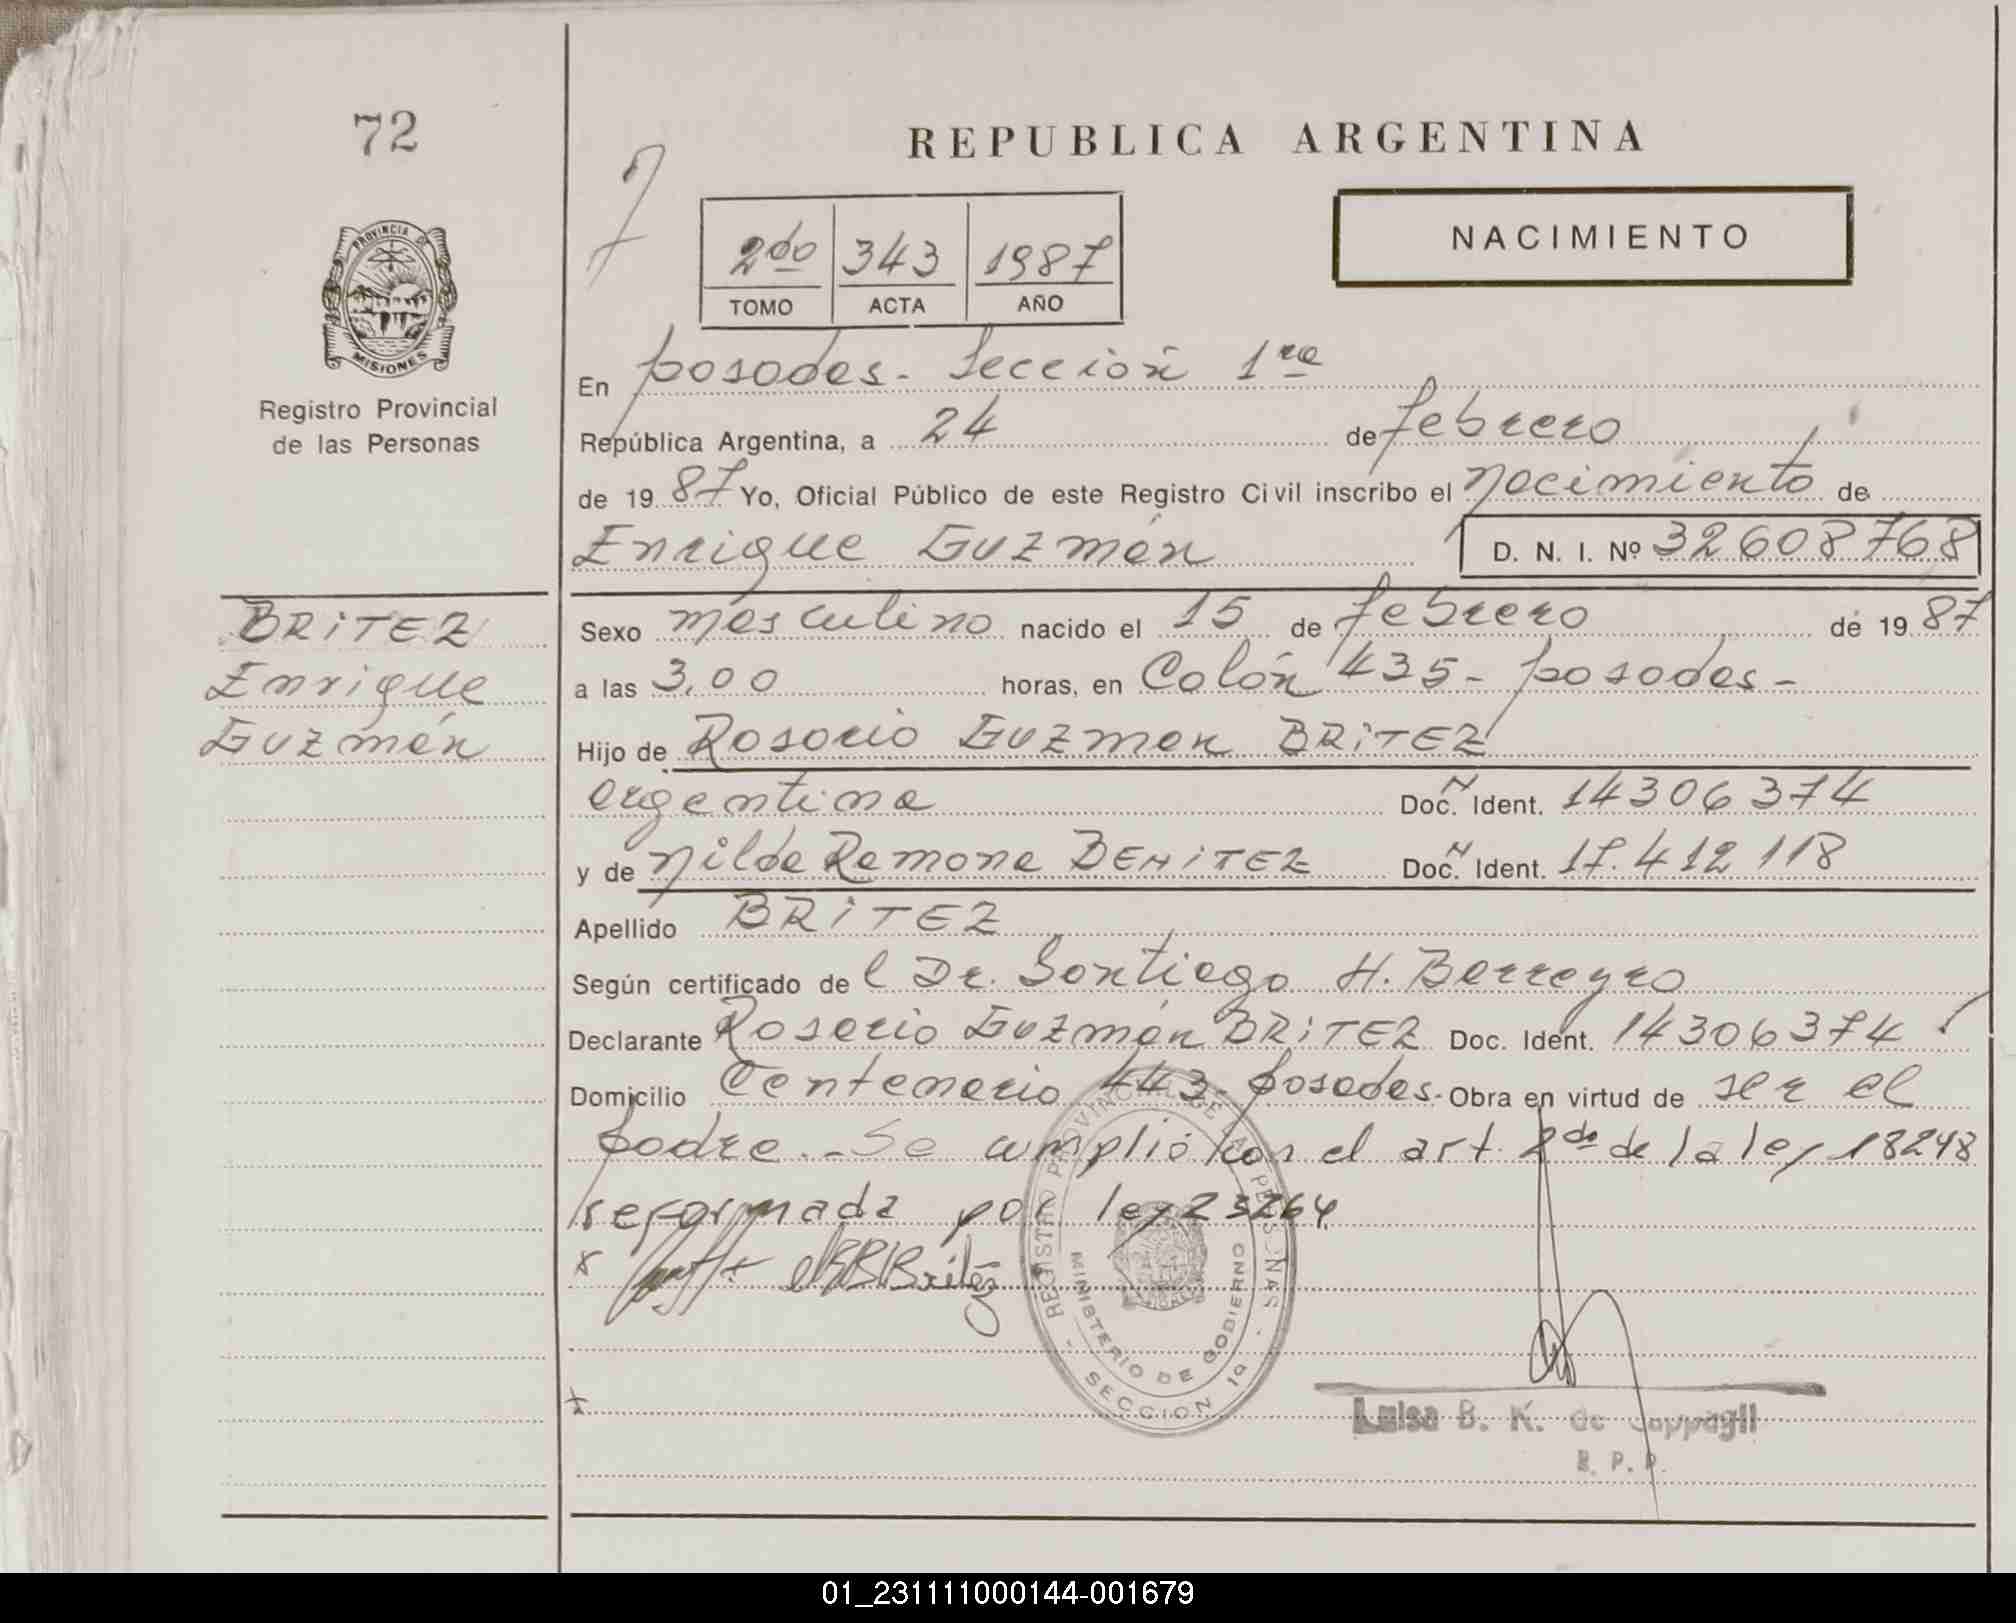 72
REPUBLICA ARGENTINA
NACIMIENTO
2do 343 1987
TOMO ACTA AÑO
PROVINCIA DE
MISIONES
Registro Provincial
de las Personas
En Posadas - Sección 1ra
República Argentina, a 24 de febrero
de 1987 Yo, Oficial Público de este Registro Civil inscribo el nacimiento de
Enrique Guzmán D. N. I. Nº 32608768
BRiTEZ
Enrique
Guzmán
Sexo masculino nacido el 15 de febrero de 1987
a las 3,00 horas, en Colón 435 - posadas -
Hijo de Rosario Guzman BRiTEZ
argentina Doc. Ident. 14306374
y de Nilda Ramona BENiTEZ Doc. Ident. 17.412118
Apellido BRiTEZ
Según certificado del Dr. Santiago H. Barreyro
Declarante Rosario Guzmán BRiTEZ Doc. Ident. 14306374
Domicilio Centenario 443 - posadas - Obra en virtud de ser el
padre. - Se cumplió con el art. 2do de la ley 18248
reformada por ley 23264
x Britez
REGISTRO PROVINCIAL DE LAS PERSONAS
MINISTERIO DE GOBIERNO
SECCION 1a
Luisa B. K. de
01_231111000144-001679